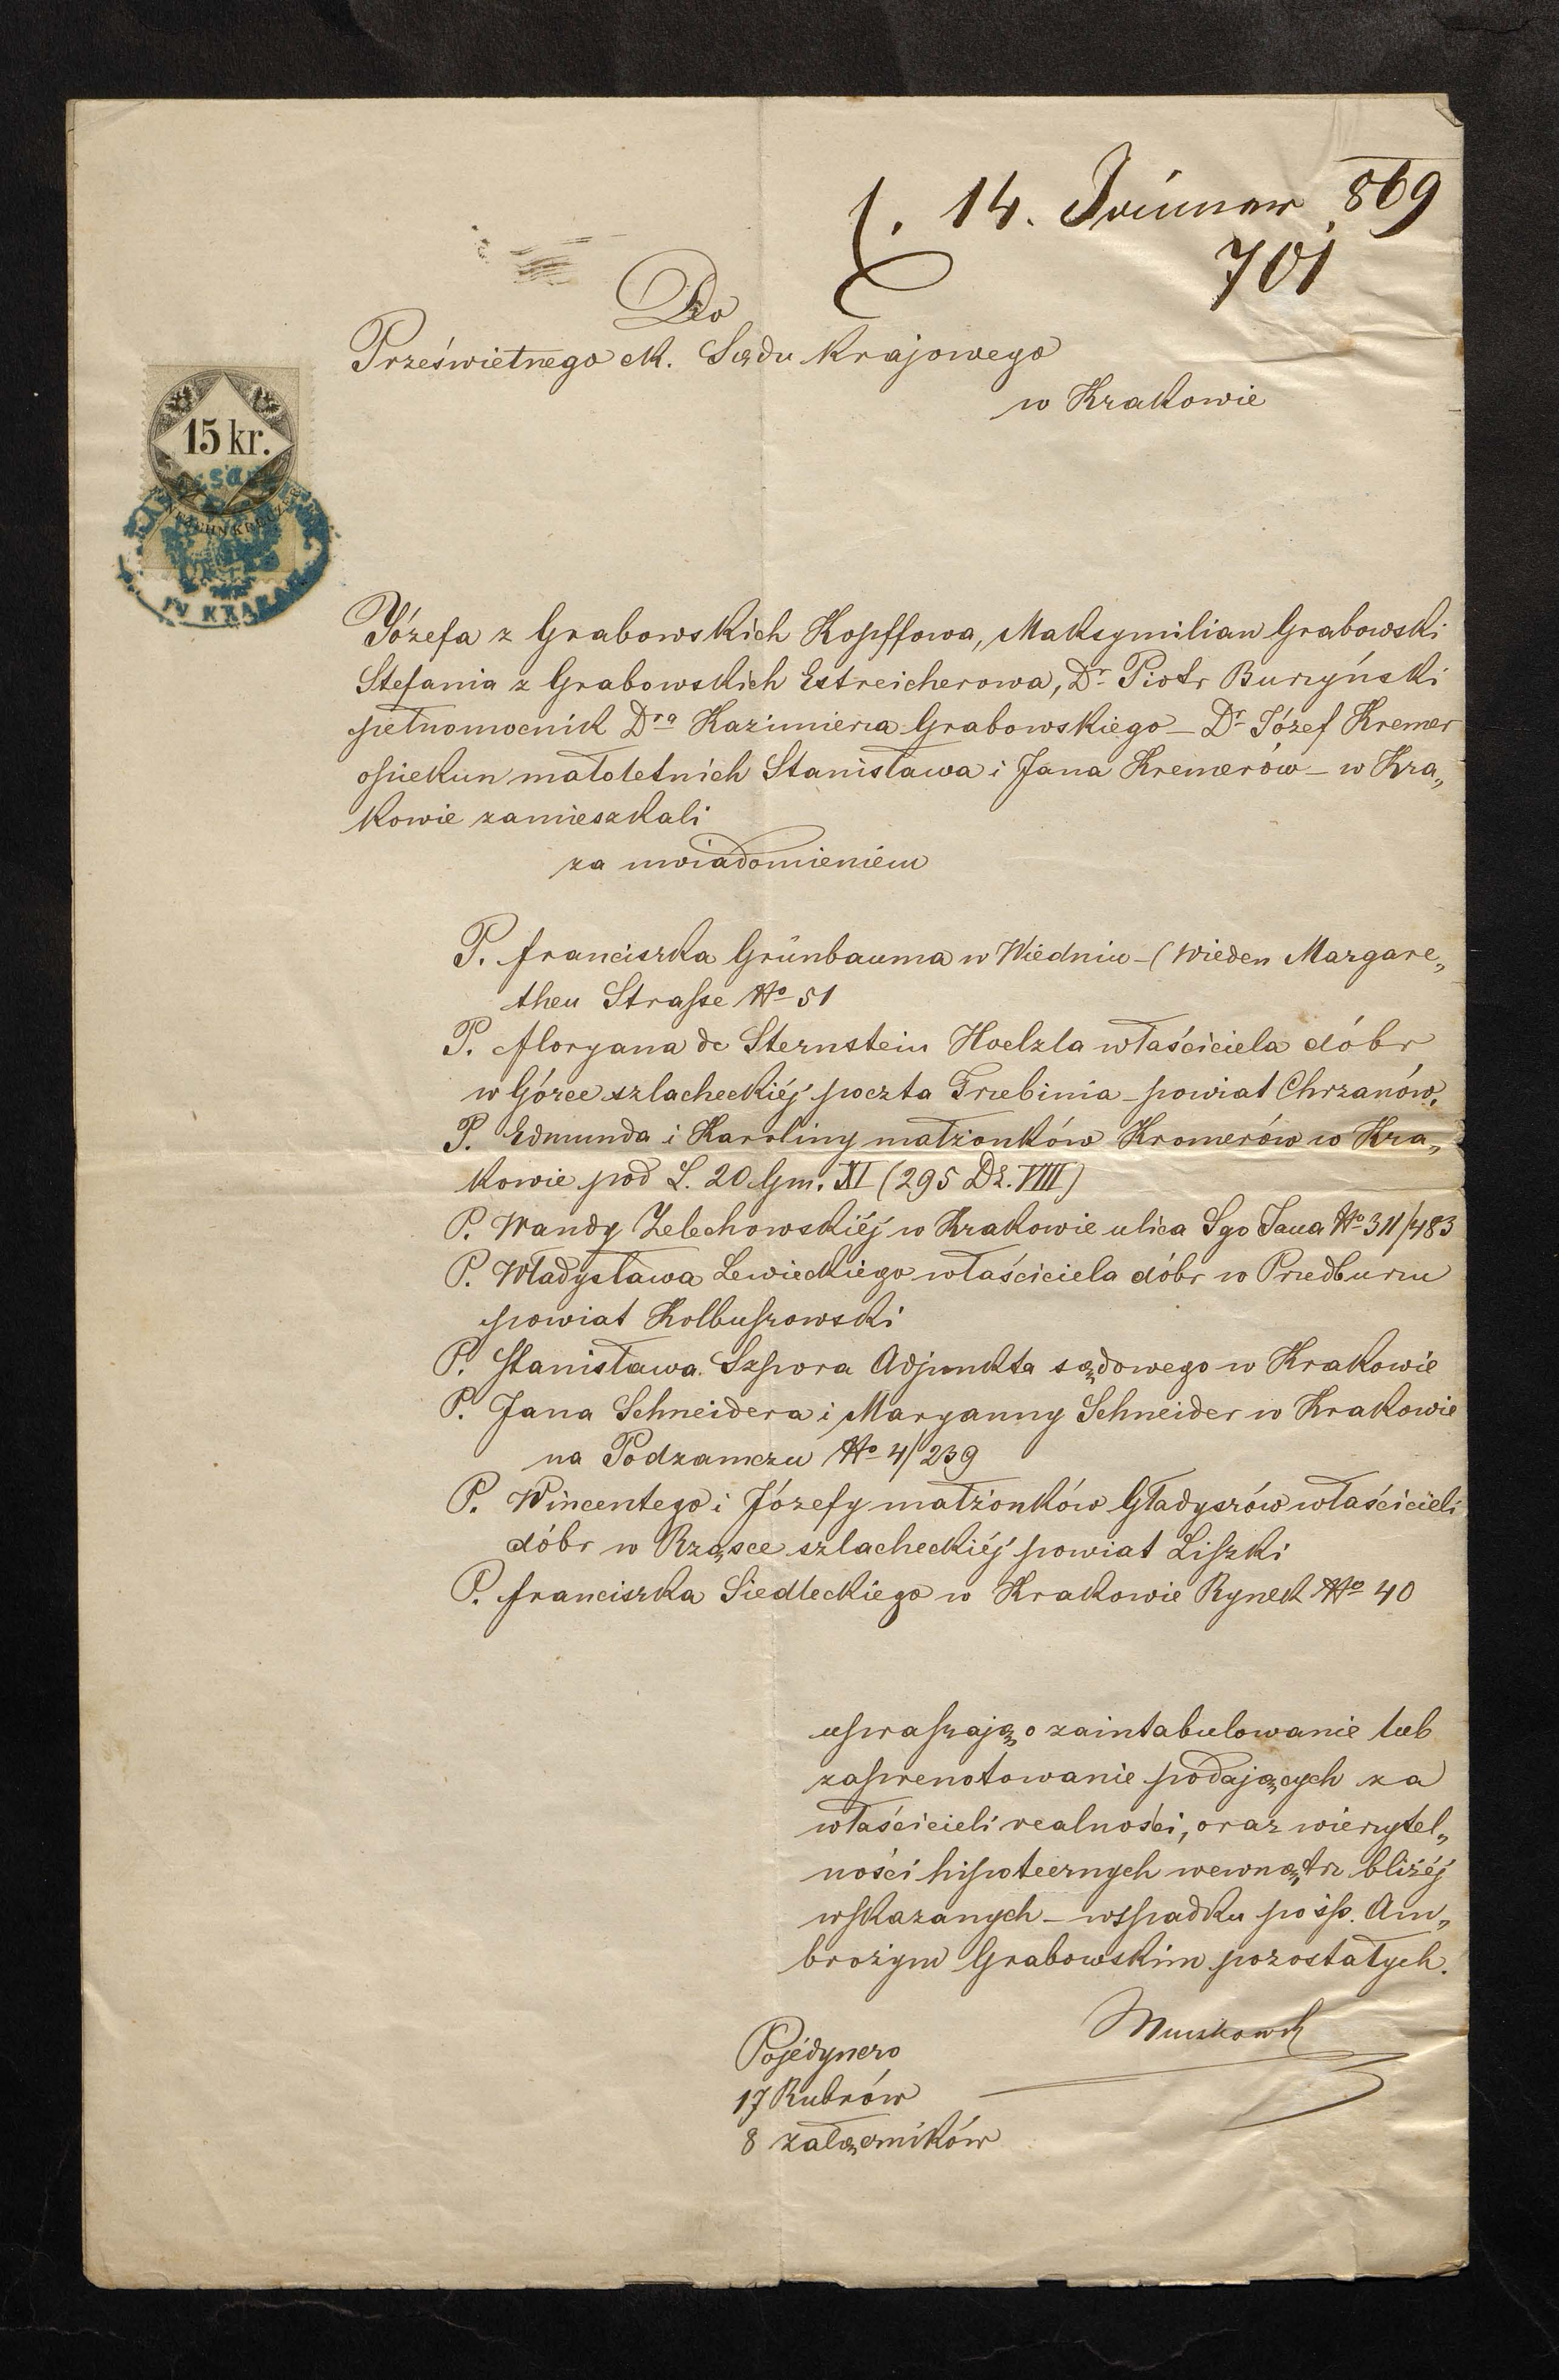 14. Januar 869
701
Do
Prześwietnego ck. Sądu Krajowego
w Krakowie
15 kr.
IV KRAKAU
Józefa z Grabowskich Kopffowa, Maksymilian Grabowski
Stefania z Grabowskich Estreicherowa, Dr Piotr Burzyński
pełnomocnik Dra Kazimierza Grabowskiego – Dr Józef Kremer
opiekun małoletnich Stanisława i Jana Kremerów – w Kra„
kowie zamieszkali
za uwiadomieniem
P. Franciszka Grünbauma w Wiedniu – (Wieden Margare„
then Strasse No 51
P. Floryana de Sternstein Hoelzla właściciela dóbr
w Górce szlacheckiéj poczta Trzebinia – powiat Chrzanów.
P. Edmunda i Karoliny małżonków Kromerów w Kra„
kowie pod L. 20 Gm. XI (295 Dz. VIII)
P. Wandy Zelechowskiéj w Krakowie ulica Sgo Jana No 311/483
P. Władysława Lewieckiego właściciela dóbr w Przedborzu
powiat Kolbuszowski
P. Stanisława Szpora Adjunkta sądowego w Krakowie
P. Jana Schneidera i Maryanny Schneider w Krakowie
na Podzamczu No 4/239
P. Wincentego i Józefy małżonków Gładyszów właścicieli
dóbr w Rząsce szlacheckiéj powiat Liszki
P. Franciszka Siedleckiego w Krakowie Rynek No 40
upraszają o zaintabulowanie lub
zaprenotowanie podających za
właścicieli realności, oraz wierzytel„
ności hipotecznych wewnątrz bliżéj
wskazanych – wspadku po śp. Am„
brożym Grabowskim pozostałych.
Pojédynczo
17 Rubrów
8 załączników